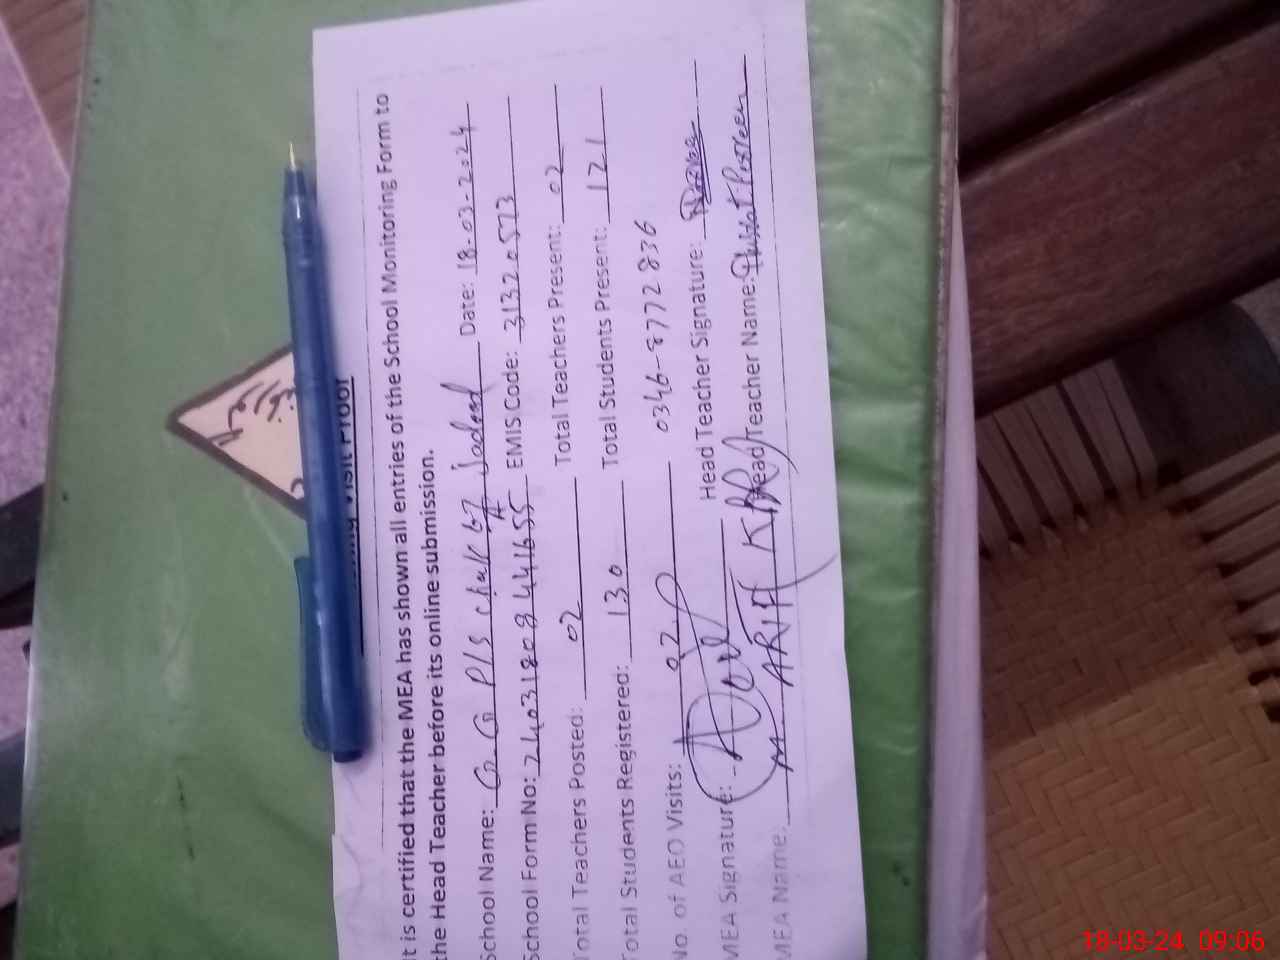 Visit Proof
It is certified that the MEA has shown all entries of the School Monitoring Form to
the Head Teacher before its online submission.
School Name: G.G P/S Chak 67/A Sadeed Date: 18-03-2024
School Form No: 24031808441655 EMIS Code: 31320573
Total Teachers Posted: 02 Total Teachers Present: 02
Total Students Registered: 130 Total Students Present: 121
No. of AEO Visits: 02 0346-8772836
MEA Signature: Head Teacher Signature:
MEA Name: M ARIF Head Teacher Name:
18-03-24 09:06